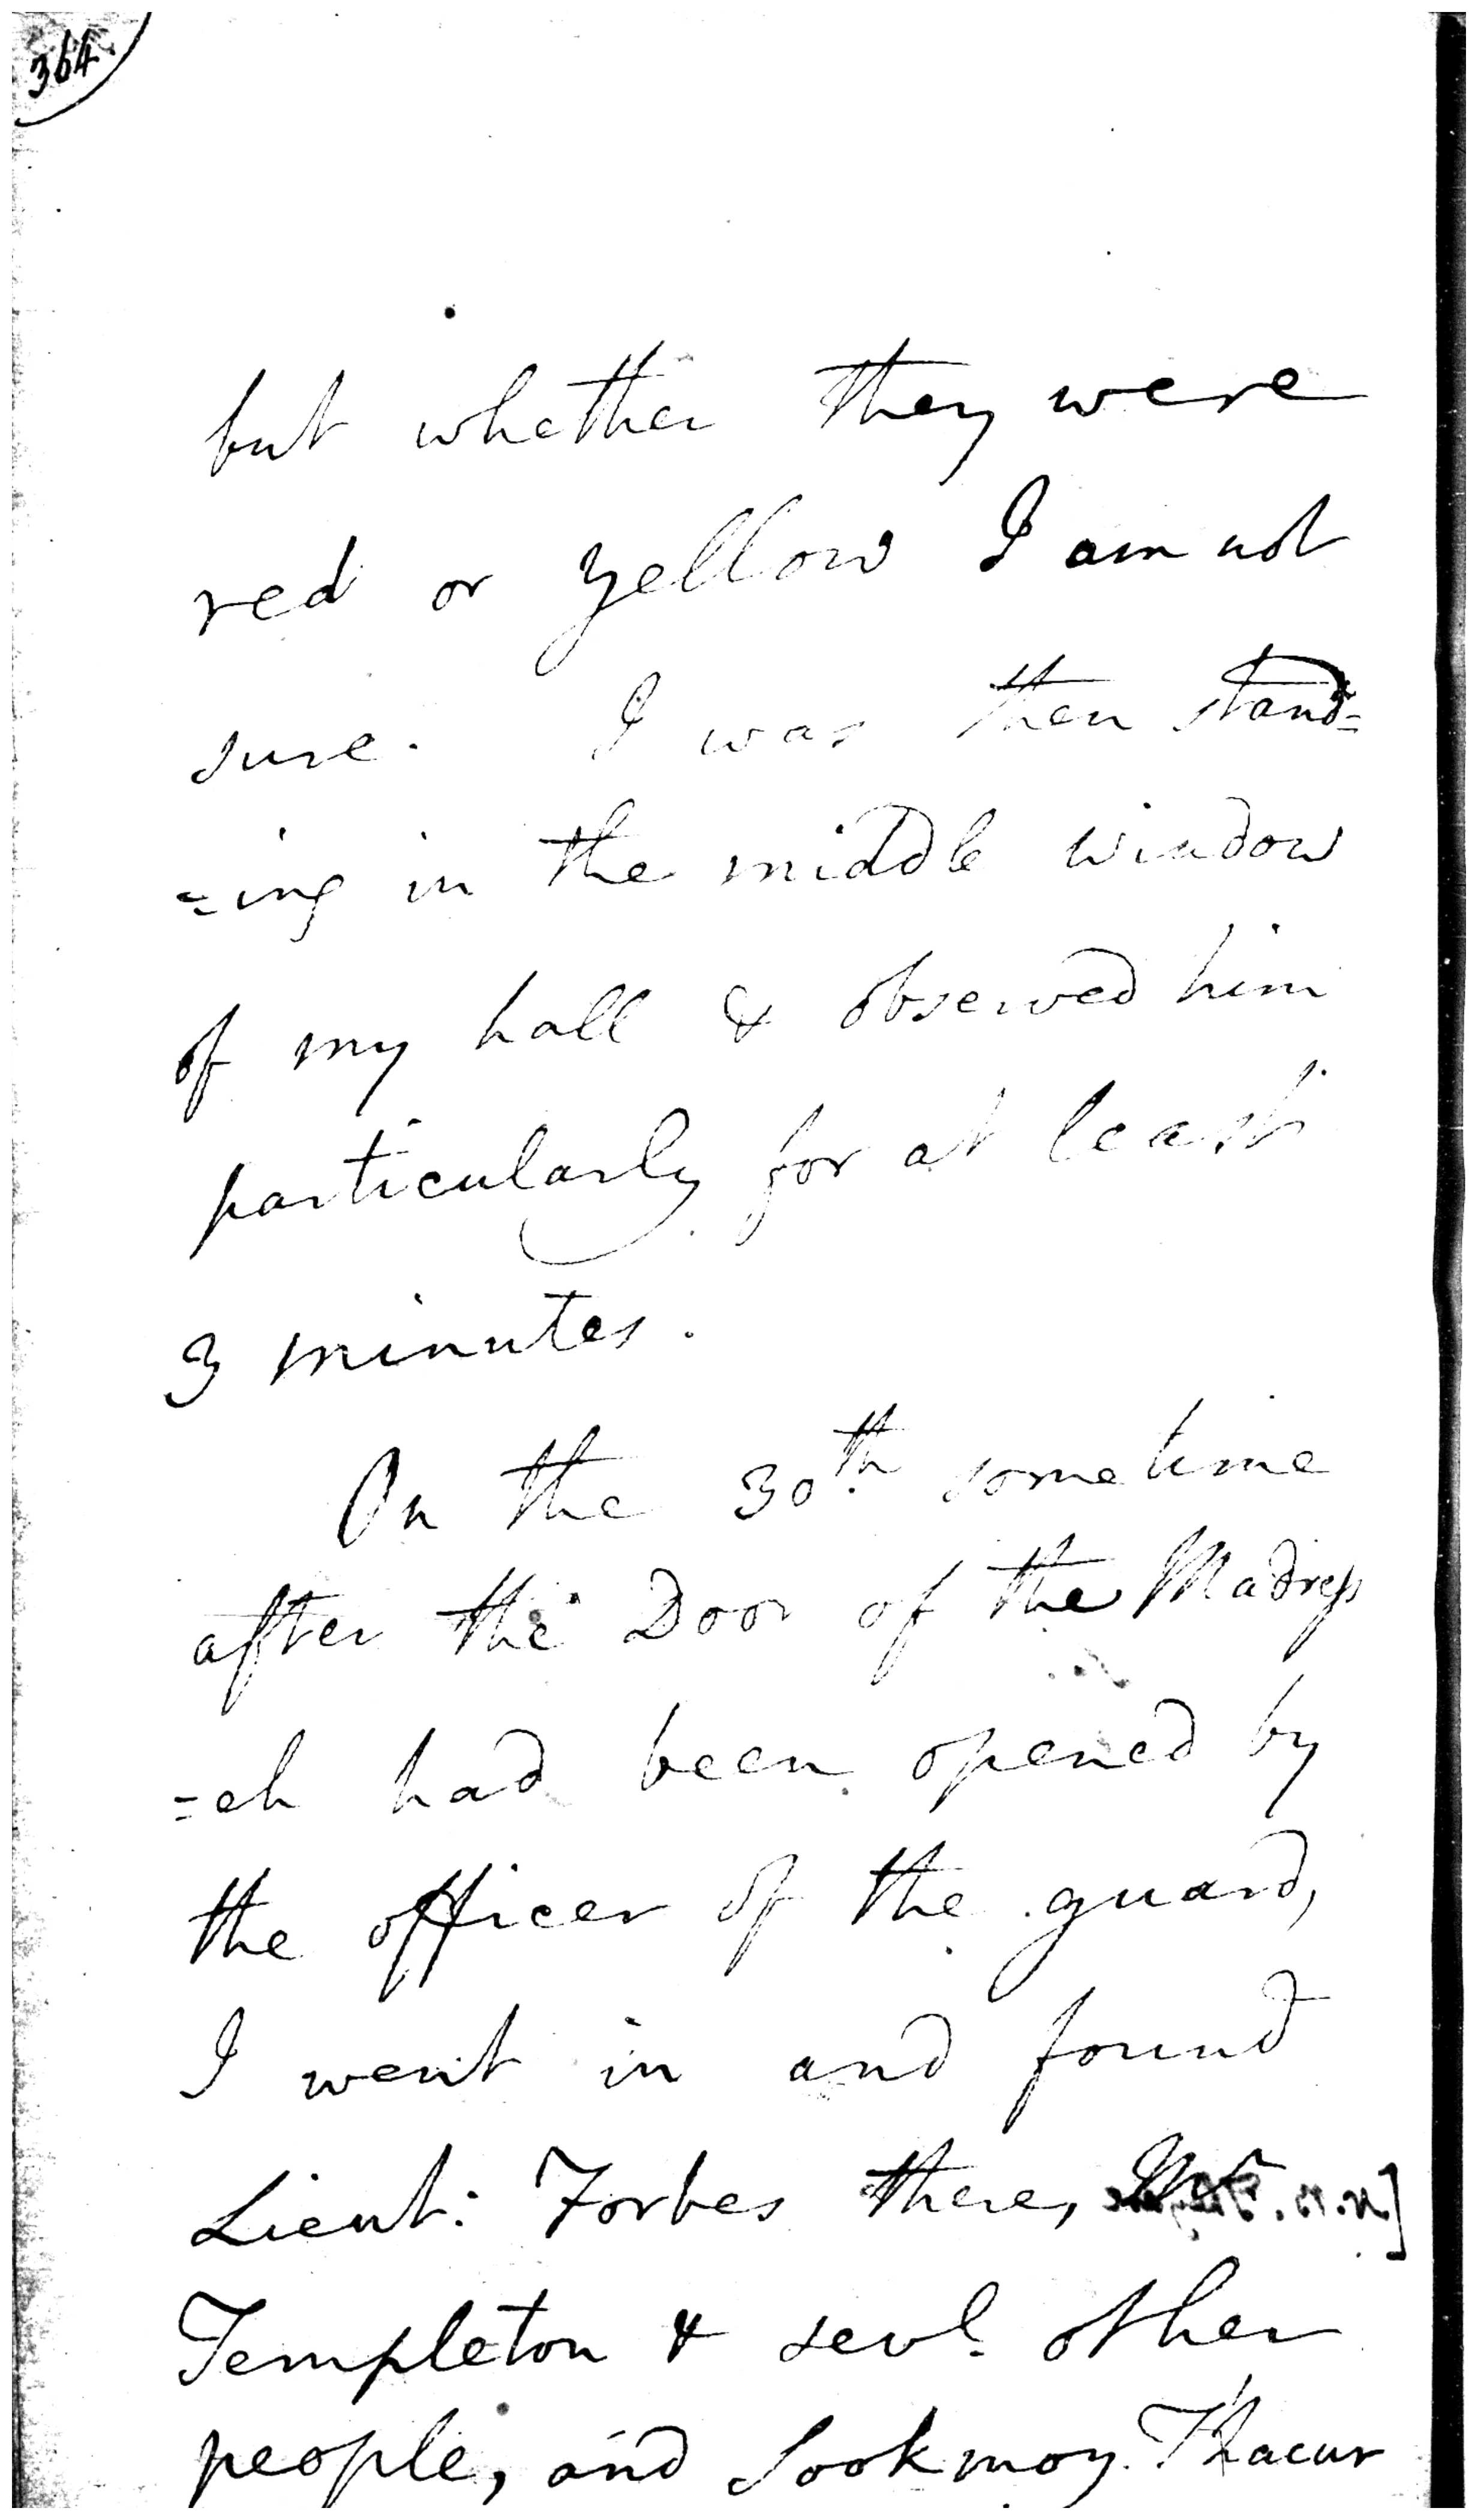 364
but whether they were
red or yellow I am not
sure. I was then stand=
=ing in the middle window
of my hall & observed him
particularly for at least
3 minutes.
On the 30th sometime
after the Door of the Madress
=eh had been opened by
the officer of the guard,
I went in and found
Lieut: Forbes there, Mr
Templeton & sevl. other
people, and Sookmoy Thacur